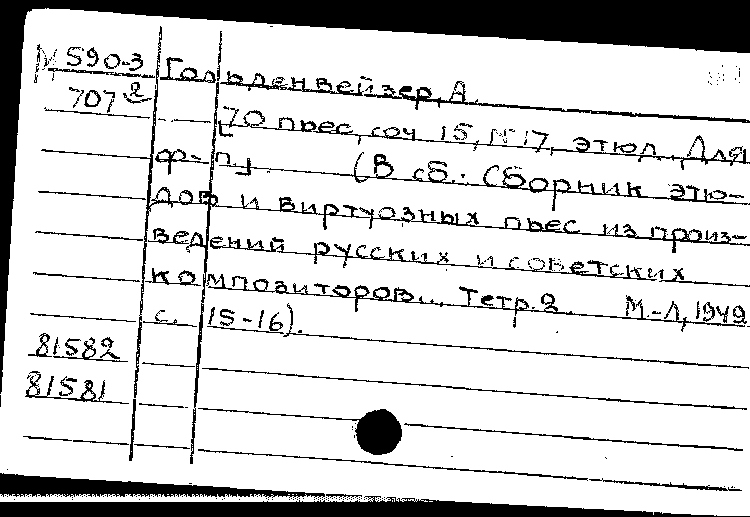 М 590-3 Гольденвейзер, А.
707 2
[70 пьес, соч 15, №17, этюд. Для
ф-п.] (В сб.: Сборник этю-
дов и виртуозных пьес из произ-
ведений русских и советских
композиторов... Тетр. 2. М.-Л, 1949
с. 15-16).
81582
81581